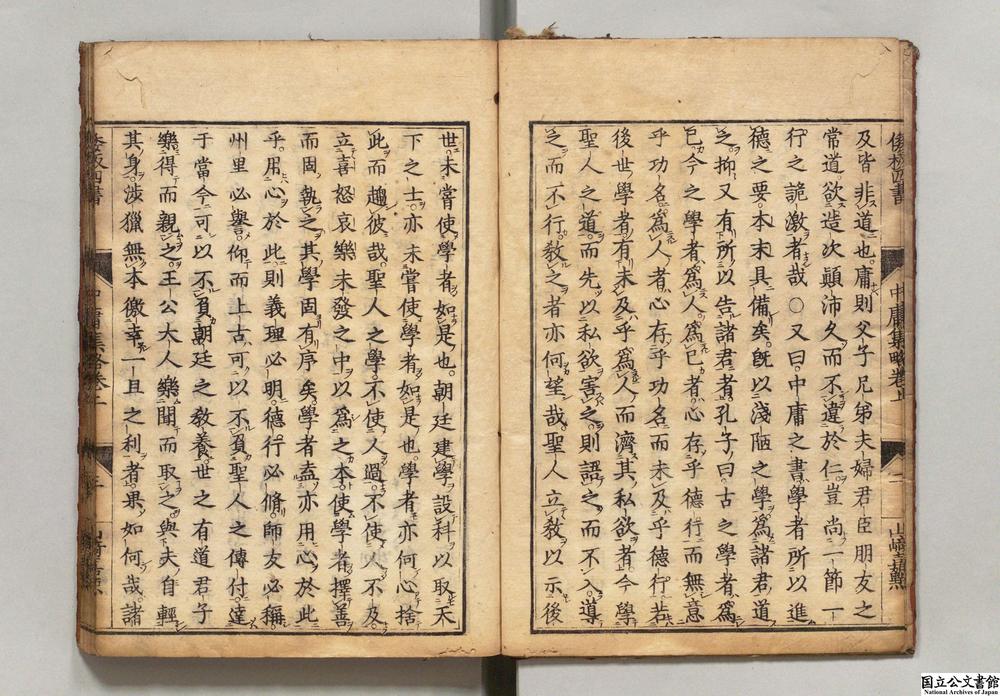 及皆非道也庸則父子兄弟夫婦君臣朋友之
常道欲造次顛沛久而不違於仁豈尚一節一
行之詭激者哉○又曰中庸之書學者所以進
德之要本末具備矣既以淺陋之學為諸君道
之抑又有所以告諸君者孔子曰古之學者為
已今之學者為人為已者心存乎德行而無意
乎功名為人者心存乎功名而未及乎德行若
後世學者有未及乎為人而濟其私欲者今學
聖人之道而先以私欲害之則語之而不入導
之而不行教之者亦何望哉聖人立教以示後
世未嘗使學者如是也朝廷建學設科以取天
下之士亦未嘗使學者如是也學者亦何心捨
此而趨彼哉聖人之學不使人過不使人不及
立喜怒哀樂未發之中以為之本使學者擇善
而固執之其學固有序矣學者盍亦用心於此
乎用心於此則義理必明德行必脩師友必稱
州里必譽仰而上古可以不負聖人之傳付達
于當今可以不負朝廷之教養世之有道君子
樂得而親之王公大人樂聞而取之與夫自輕
其身涉獵無本徼幸一旦之利者果如何哉諸
中庸集略卷上
国立公文書館
National Archives of Japan